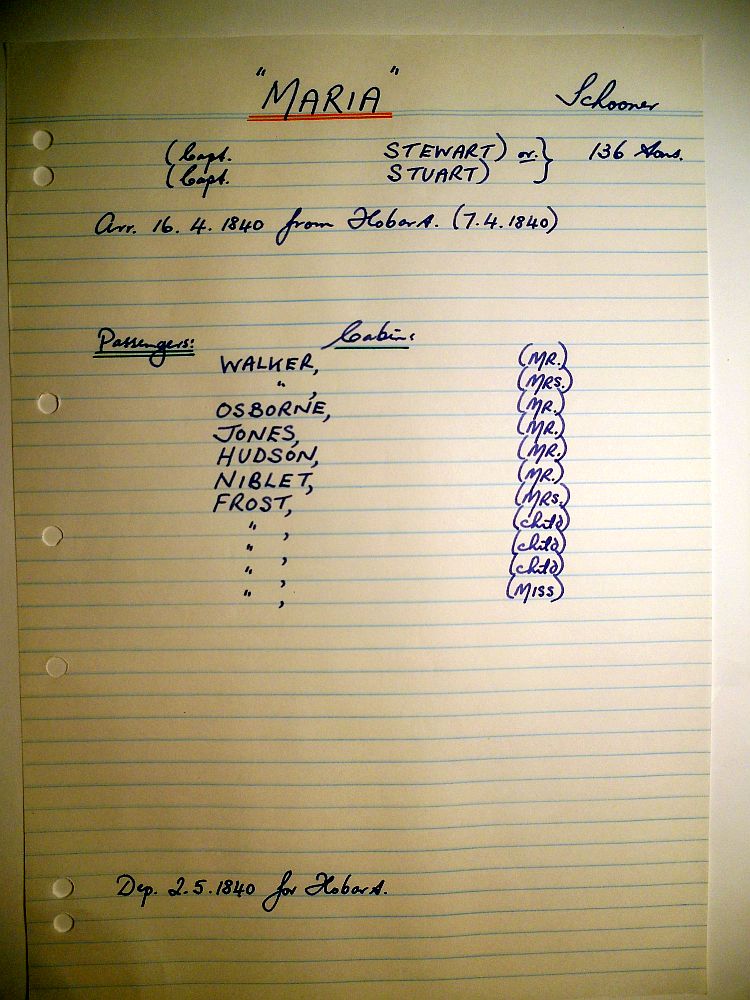 "MARIA" Schooner
(Capt. STEWART) or } 136 tons.
(Capt. STUART)
Arr. 16. 4. 1840 from Hobart. (7.4.1840)
Passengers: Cabin:
WALKER, (MR.)
" , (MRS.)
OSBORNE, (MR.)
JONES, (MR.)
HUDSON, (MR.)
NIBLET, (MR.)
FROST, (MRS.)
" , (child)
" , (child)
" , (child)
" , (MISS)
Dep. 2.5.1840 for Hobart.